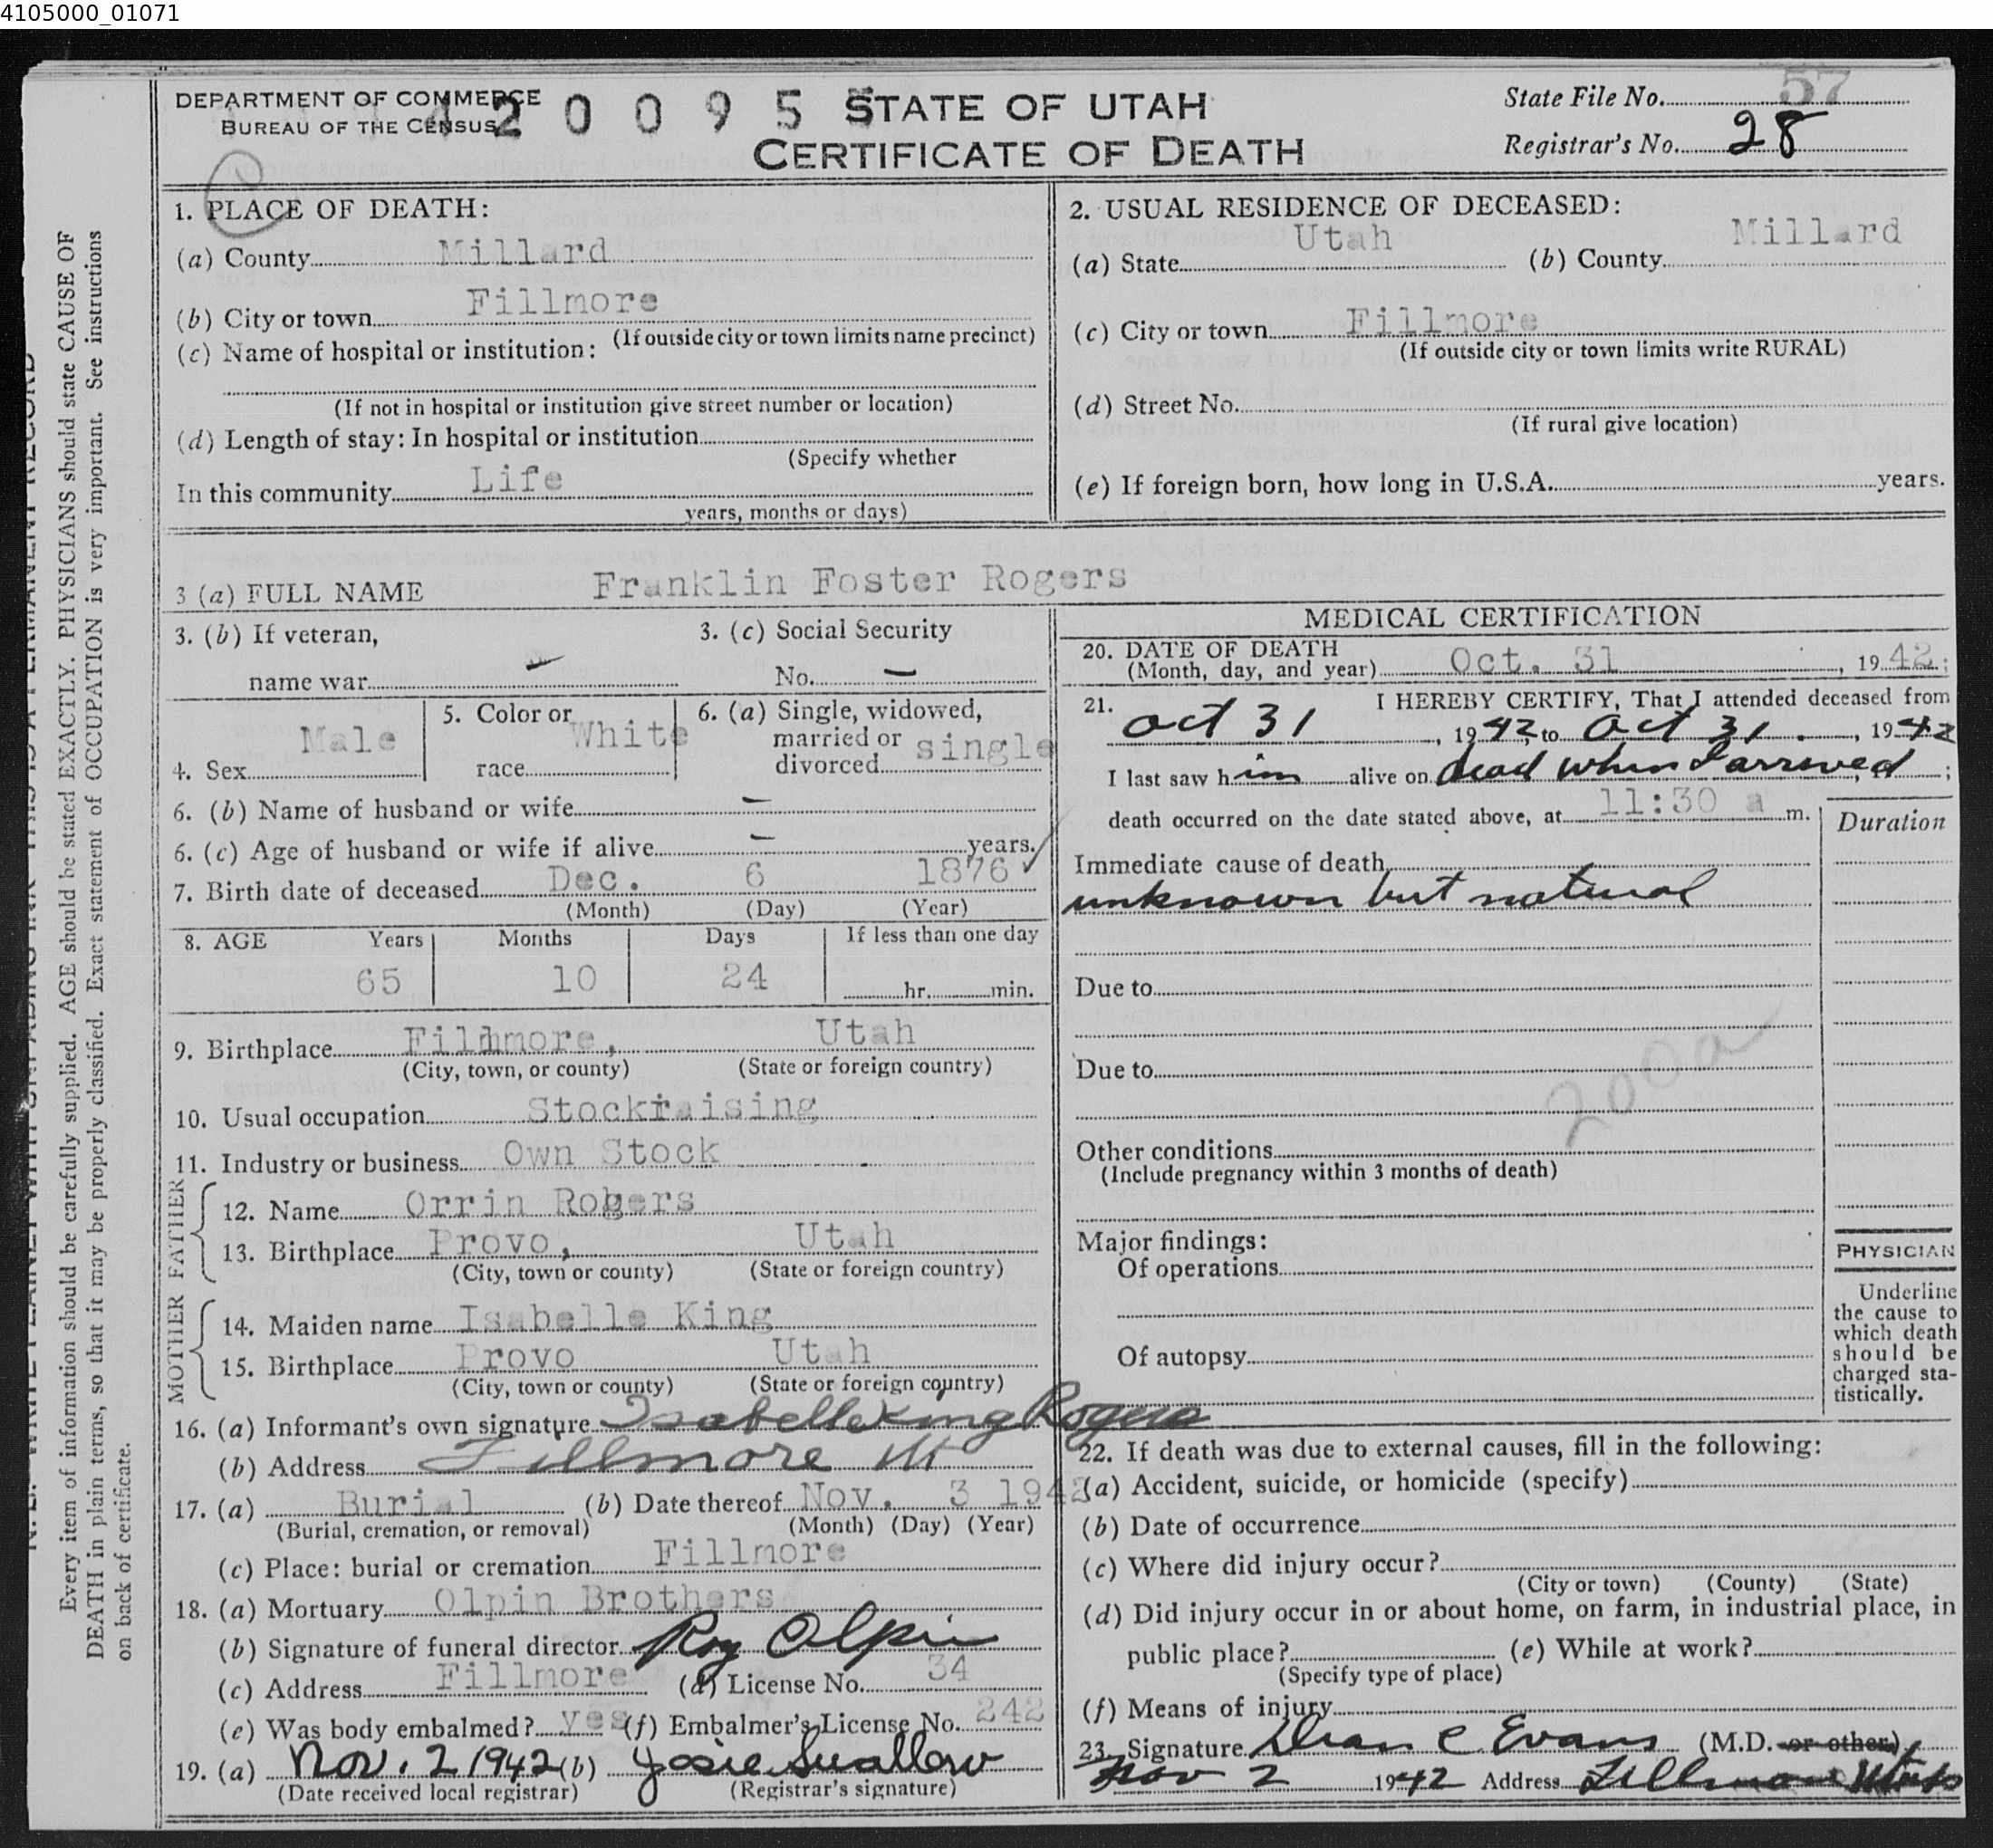 4105000_01071
DEPARTMENT OF COMMERCE
BUREAU OF THE CENSUS
4 2 0 0 9 5
STATE OF UTAH
CERTIFICATE OF DEATH
State File No. 57
Registrar's No. 28
1. PLACE OF DEATH:
(a) County Millard
(b) City or town Fillmore
(If outside city or town limits name precinct)
(c) Name of hospital or institution:
(If not in hospital or institution give street number or location)
(d) Length of stay: In hospital or institution
(Specify whether
In this community Life
years, months or days)
2. USUAL RESIDENCE OF DECEASED:
(a) State Utah (b) County Millard
(c) City or town Fillmore
(If outside city or town limits write RURAL)
(d) Street No.
(If rural give location)
(e) If foreign born, how long in U.S.A. years.
3 (a) FULL NAME Franklin Foster Rogers
3. (b) If veteran,
name war —
3. (c) Social Security
No. —
4. Sex Male
5. Color or
race White
6. (a) Single, widowed,
married or
divorced single
6. (b) Name of husband or wife —
6. (c) Age of husband or wife if alive — years.
7. Birth date of deceased Dec. 6 1876 ✓
(Month) (Day) (Year)
8. AGE Years Months Days If less than one day
65 10 24 hr. min.
9. Birthplace Fillmore, Utah
(City, town, or county) (State or foreign country)
10. Usual occupation Stockraising
11. Industry or business Own Stock
FATHER
12. Name Orrin Rogers
13. Birthplace Provo, Utah
(City, town or county) (State or foreign country)
MOTHER
14. Maiden name Isabelle King
15. Birthplace Provo Utah
(City, town or county) (State or foreign country)
16. (a) Informant's own signature Isabelle King Rogers
(b) Address Fillmore Ut
17. (a) Burial (b) Date thereof Nov. 3 1942
(Burial, cremation, or removal) (Month) (Day) (Year)
(c) Place: burial or cremation Fillmore
18. (a) Mortuary Olpin Brothers
(b) Signature of funeral director Roy Olpin
(c) Address Fillmore (d) License No. 34
(e) Was body embalmed? yes (f) Embalmer's License No. 242
19. (a) Nov. 2 1942 (b) Josie Swallow
(Date received local registrar) (Registrar's signature)
MEDICAL CERTIFICATION
20. DATE OF DEATH
(Month, day, and year) Oct. 31, 1942;
21. I HEREBY CERTIFY, That I attended deceased from
Oct 31, 1942, to Oct 31, 1942
I last saw him alive on dead when I arrived;
death occurred on the date stated above, at 11:30 a m.
Duration
Immediate cause of death
unknown but natural
Due to
Due to
200a
Other conditions
(Include pregnancy within 3 months of death)
Major findings:
Of operations
Of autopsy
PHYSICIAN
Underline
the cause to
which death
should be
charged sta-
tistically.
22. If death was due to external causes, fill in the following:
(a) Accident, suicide, or homicide (specify)
(b) Date of occurrence
(c) Where did injury occur?
(City or town) (County) (State)
(d) Did injury occur in or about home, on farm, in industrial place, in
public place? (e) While at work?
(Specify type of place)
(f) Means of injury
23. Signature Dean C Evans (M.D. or other)
Nov 2 1942 Address Fillmore Utah
N. B. WRITE PLAINLY WITH UNFADING INK THIS IS A PERMANENT RECORD
Every item of information should be carefully supplied. AGE should be stated EXACTLY. PHYSICIANS should state CAUSE OF
DEATH in plain terms, so that it may be properly classified. Exact statement of OCCUPATION is very important. See instructions
on back of certificate.